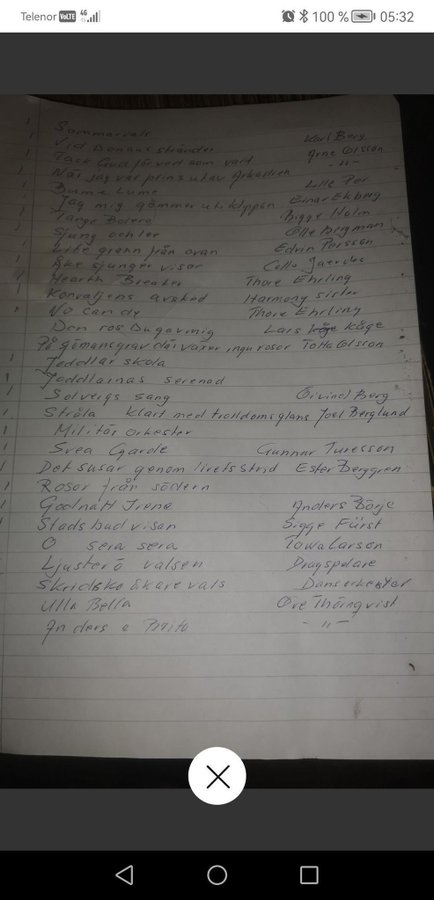 Telenor VoLTE 4G 100 % 05:32
Sommarvals Karl Berg
Vid Donaus stränder Arne Olsson
Tack Gud för ved som vart -"-
När jag var prins utav Arkadien
Bjume Lume Lille Per
Jag mig gömmer uti klippan Einar Ekberg
Tango Bolero Bigge Holm
Sjung och le Olle Bergman
Lite grann från ovan Edvin Persson
Åke sjunger visor Cello
Hearth Breaker Thore Ehrling
Konvaljens avsked Harmony sister
No candy Thore Ehrling
Den ros Du gav mig Lars Kåge
På sömansgrav där växer ingu rosor Totta Olsson
Jeddlar skola
Jeddlainas serenad
Solveigs sång Öivind Berg
Stråla klart med trolldomsglans Joel Berglund
Militär orkester
Svea Garde Gunnar Turesson
Det susar genom livets strid Ester Berggren
Rosor från södern
Godnatt Irene Anders Börje
Stadsbudvisan Sigge Fürst
O sera sera Towa Carson
Ljusterö valsen Dragspelare
Skridskoåkare vals Dansorkester
Ulla Bella Ove Thörnqvist
Anders o Britta -"-